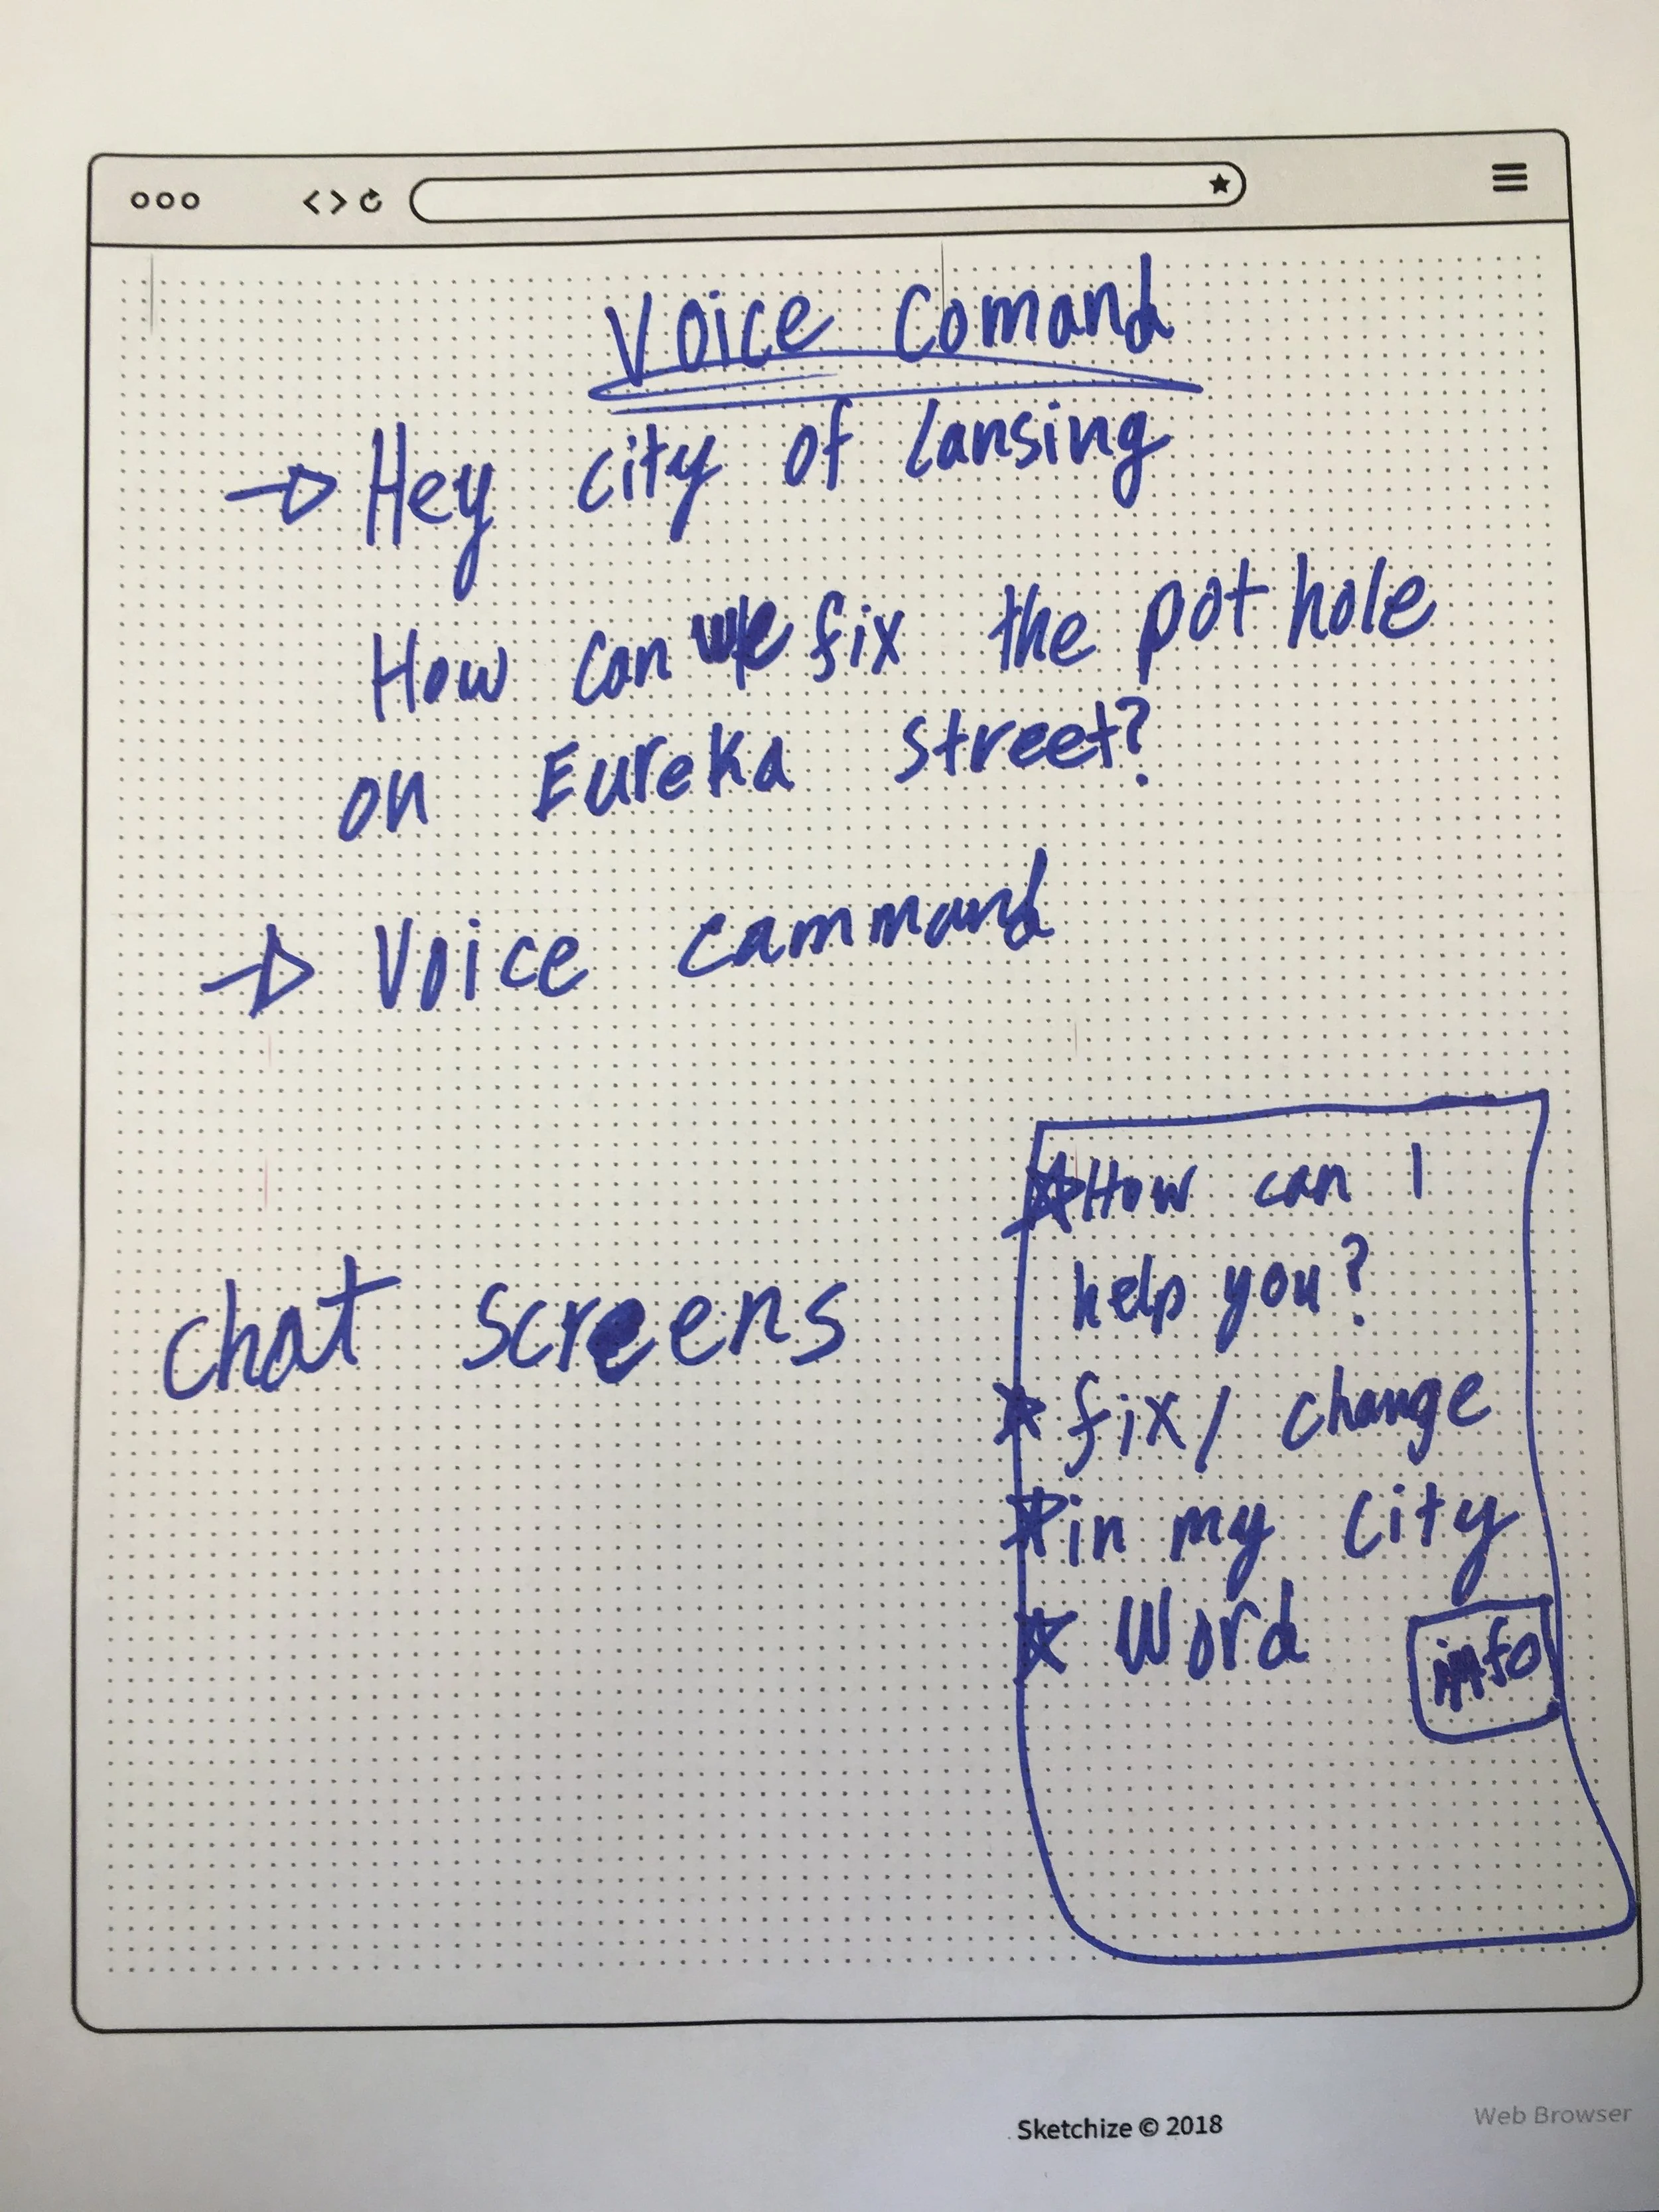 Voice Comand
Hey city of Lansing
How can we fix the pot hole
on Eureka street?
Voice cammand
chat screens
How can I
help you?
fix / change
in my city
Word
info
Sketchize © 2018
Web Browser